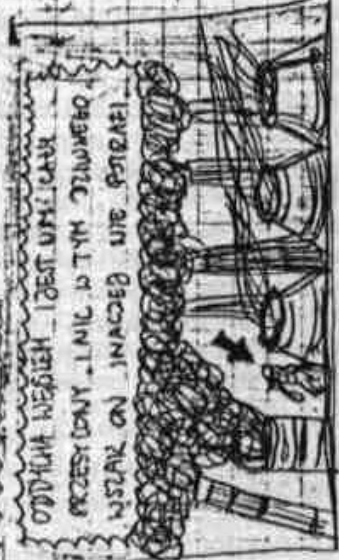 ODDYCHA WĘGLEM I JEST NIM CAŁY
PRZESYCONY I NIC W TYM DZIWNEGO
WSZAK ON INACZEJ NIE POTRAFI